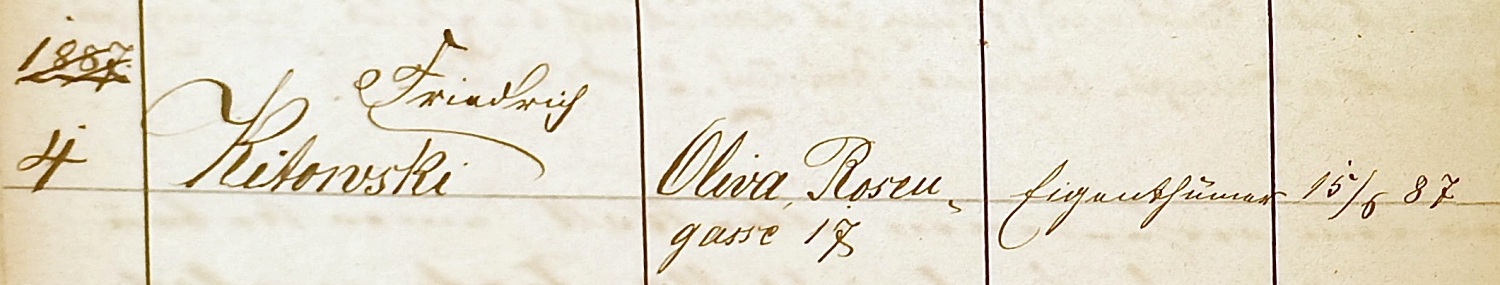 1887.
Friedrich
4 Kitowski Oliva, Rosen- Eigenthümer 15/6 87
gasse 17